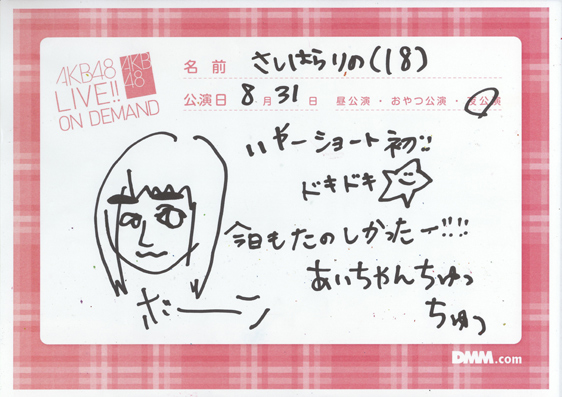 AKB48
LIVE!!
ON DEMAND
AKB
48
名前 さいはらりの(18)
公演日 8月31日 昼公演・おやつ公演・夜公演
いやーショート初!!
ドキドキ
今日もたのしかったー!!!!
あいちゃんちゅっ
ちゅっ
ボーーン
DMM.com